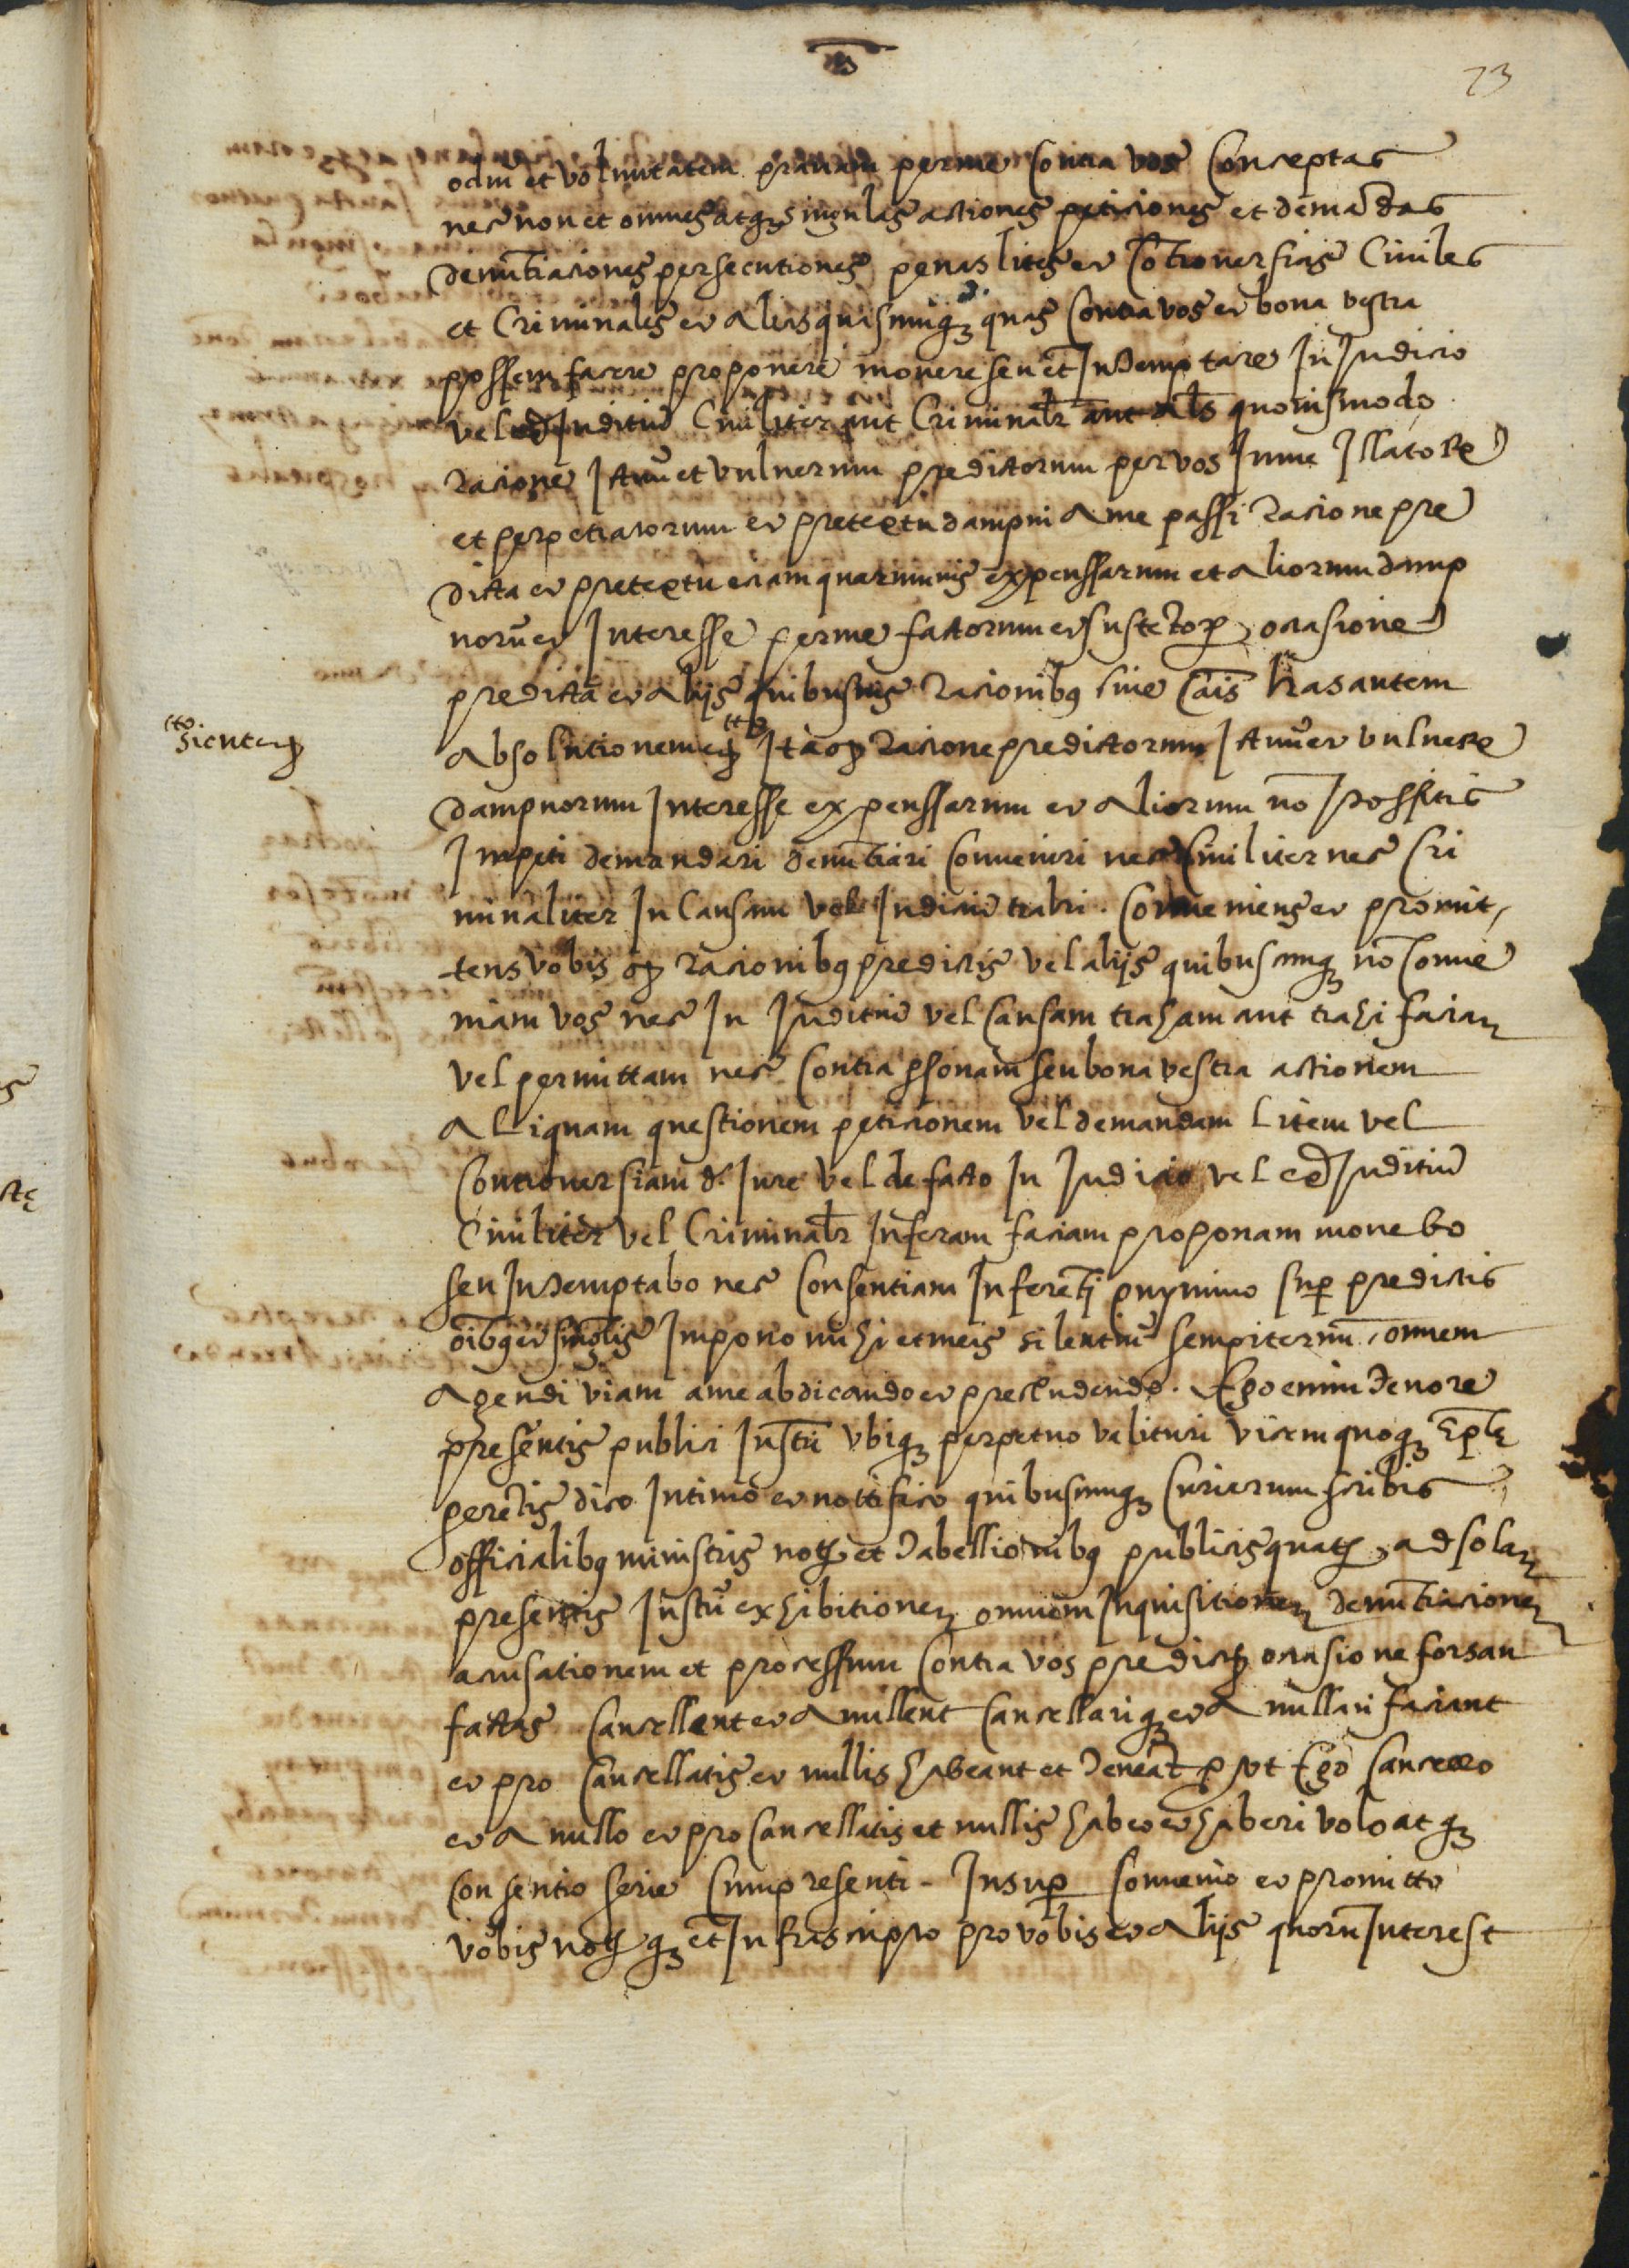 73
odiũ et voluntatem prauam per me Contra vos Conceptas
nec non et omnes atq₃ singulas actiones peticiones et demãdas
denũtiaciones persecutiones penas lites et Cõtrouersias Ciuiles
et Criminales et alias quascumq₃ quas Contra vos et bona vestra
possem facere proponere mouere seu et̃ Intemptare In Iudicio
vel Iuditiũ Ciuiliter aut Criminalr̃ aut al̃s quouismodo
racione Ictuũ et vulnerum predictorum per vos In me Illatoꝝ
et perpetratorum et pretextu dampni a me passi racione pre
dicta et pretextu etiam quarumuis expenssarum et aliorum damp
norũ et Interesse per me factorum et sustẽtoꝝ ocasione
predicta et alijs quibusuis racionibꝰ siue cãis has autem
sicuteꝗ
absolutionem Ita ꝙ racione predictorum Ictuũ et vulneꝝ
dampnorum Interesse expenssarum et aliorum nõ possitis
Impeti demandari denũtiari Conueniri nec Ciuiliter nec Cri
minaliter In Causam vel Iudiciũ trahi. Conueniens et promit,
tens vobis ꝙ racionibꝰ predictis vel alijs quibuscumq₃ nõ Conue
niam vos nec In Iuditiũ vel Causam traham aut trahi faciam
vel permittam nec Contra p̱sonam seu bona vestra actionem
aliquam questionem peticionem vel demandam litem vel
Controuersiam d. Iure vel de facto In Iudicio vel Iuditiũ
Ciuiliter vel Criminalr̃ Inferam faciam proponam mouebo
seu Intemptabo nec Consentiam Inferẽti quynimo sup̱ predictis
oĩbꝰ et sing̃lis Impono mihi et meis silentiũ sempiternũ omnem
agendi viam a me abdicando et precludendo. Ego enim tenore
presentis publici Instr̃i vbiq₃ perpetuo valituri vicem quoq₃ Ep̃le
gerẽtis dico Intimo et nottifico quibuscumq₃ Curiarum scribis
officialibꝰ ministris noť et tabellionibꝰ publicis quatꝰ ad solam
presentis Instrũ exhibitionem omnem Inquisitionem denũtiacionem
acusationem et processum Contra vos predicta ocasione forsan
factas Cancellent et anullent Cancellariq₃ et anullari faciant
et pro Cancellatis et nullis habeant et teneãt p̱ut Ego Cancello
et anullo et pro Cancellatis et nullis habeo et haberi volo atq₃
Consentio serie Cum presenti - Insup̱ Conuenio et promitto
vobis noť q₃ et̃ Infrascripto pro vobis et alijs quorũ Interest